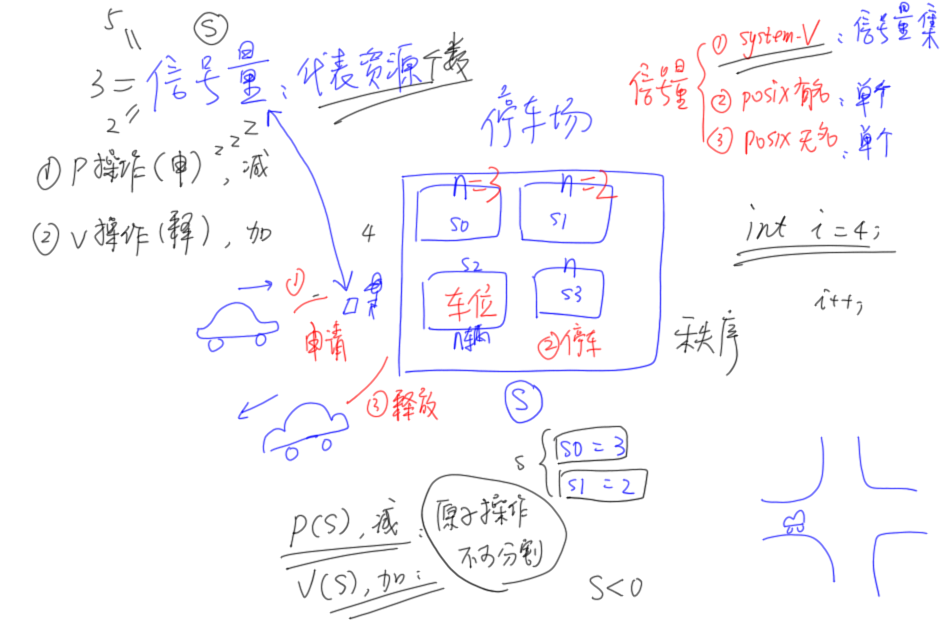 5
S
3 = 信号量：代表资源个数
2
z z z
① P操作(申)，减
② V操作(释)，加
信号量
① system-V：信号量集
② posix有名：单个
③ posix无名：单个
停车场
4
n=3
s0
n=2
s1
s2
车位
n辆
n
s3
②停车
①
申请
③释放
S
int i=4;
i++;
秩序
s
s0 = 3
s1 = 2
P(S)，减：
V(S)，加：
原子操作
不可分割
S<0